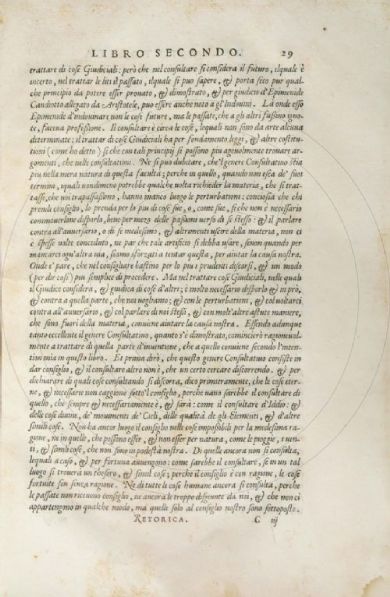 LIBRO SECONDO. 29
trattare di cose Giudiciali: però che nel consultare si considera il futuro, ilquale è
incerto, nel trattar le liti il passato, ilquale si può sapere, & porta seco pur qual-
che principio da potere esser prouato, & dimostrato, & per giudicio d'Epimenide
Candiotto allegato da Aristotele, può essere anche noto a gl'Indiuini. La onde esso
Epimenide d'indouinare non le cose future, ma le passate, che a gli altri fussino igno-
te, faceua professione. Il consultare è circa le cose, lequali non sono da arte alcuna
determinate; il trattar di cose Giudiciali ha per fondamento leggi, & altre costitu-
tioni (come ho detto) si che con tali principij si possono più ageuolmente trouare ar-
gomenti, che nelle consultationi. Ne si può dubitare, che'l genere Consultatiuo stia
più nella mera natura di questa facultà; perche in quello, quando non esca de' suoi
termini, i quali non
tasse, che un trapassassino, hanno manco luogo le perturbationi: conciosia che chi
prende consiglio, lo prenda per lo più di cose sue, &, come sue, si che non è necessario
commouerlo
contra all'auuersario, o di se medesimo, & altrimenti uscire della materia, non ci
è spesse uolte conceduto, ne par che tale artificio si debba usare, senon quando per
mancarci ogn'altra uia, siamo sforzati a tentar questa, per aiutar la causa nostra.
Onde è pare, che nel consigliare bastino per lo più i prudenti discorsi, & un modo
(per dir così) più semplice di procedere. Ma nel trattare cose Giudiciali, nelle quali
il Giudice considera, & giudica di cose d'altri; è molto necessario disporlo & in prò,
& contra a quella parte, che noi uogliamo; & con le perturbationi, & col uoltarci
contra all'auuersario, & col parlare di noi stessi, & con molt'altre astute maniere,
che sono fuori della materia, conuiene aitare la causa nostra. Essendo adunque
tanto eccellente il genere Consultatiuo, quanto s'è dimostrato, comincierò ragioneuol-
mente a trattare di quella parte d'inuentione, che a quello conuiene secondo l'inten-
tion mia in questo libro. Et prima dirò, che questo genere Consultatiuo consiste in
dar consiglio, & il consultare altro non è, che un certo cercare discorrendo. & per
dichiarar di quali cose consultando si discorra, dico primieramente, che le cose eter-
ne, & necessarie non caggiono sotto'l consiglio, perche uano sarebbe il consultare di
quello, che sempre & necessariamente è, & sarà: come il consultare d'Iddio: &
delle cose diuine, de' mouimenti de' Cieli, delle qualità de gli Elementi, & d'altre
simili cose. Non ha ancor luogo il consiglio nelle cose impossibili per la medesima ra-
gione, ne in quelle, che possono esser, & non esser per natura, come le pioggie, i uen-
ti, & simili cose, che non sono in podestà nostra. Di quelle ancora non si consulta,
lequali a caso, & per fortuna auuengono: come sarebbe il consultare, se in un tal
luogo si trouerà un thesoro, & simil cose; perche il consiglio è con ragione, le cose
fortuite sin senza ragione. Ne di tutte le cose humane ancora si consulta, perche
le passate non riceuono consiglio, ne ancora le troppo disgiunte da noi, & che non ci
appartengono in qualche modo, ma quelle solo al consiglio nostro sono sottoposte.
RETORICA. G iij